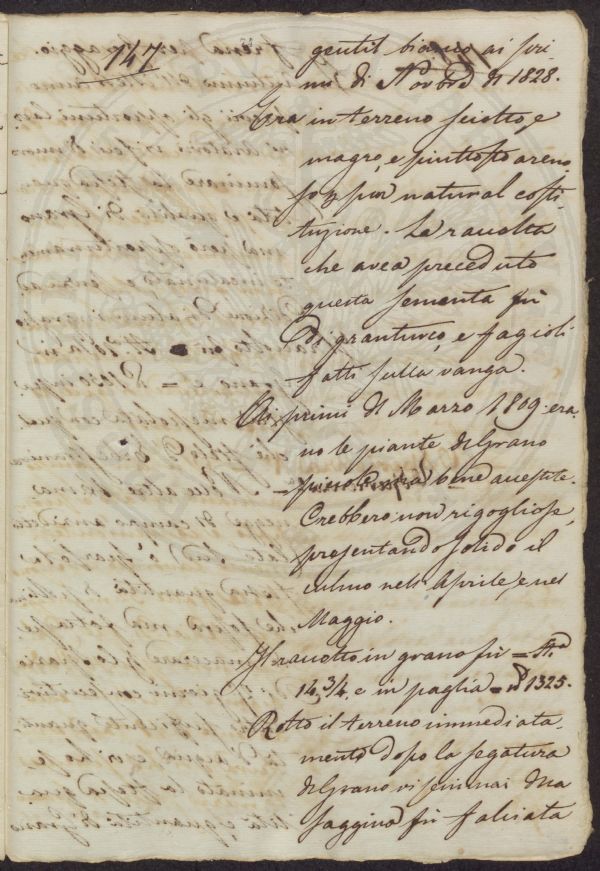 147.
gentil bianco ai pri-
mi di Novbre di 1828.
Era in terreno sciolto, e
magro, e piuttosto areno
so per natural costi-
tuzione. La raccolta
che avea preceduto
questa sementa fu
di granturco, e fagioli
fatti sulla vanga.
Ai primi di Marzo 1809. era-
no le piante del Grano
piccole, ma bene accestite.
Crebbero non rigogliose,
presentando solido il
culmo nell'Aprile, e nel
Maggio.
Il raccolto in grano fu = St.a
14 3/4. e in paglia = 1325.
Rotto il terreno immediata-
mente dopo la segatura
del Grano vi seminai della
saggina fu falciata